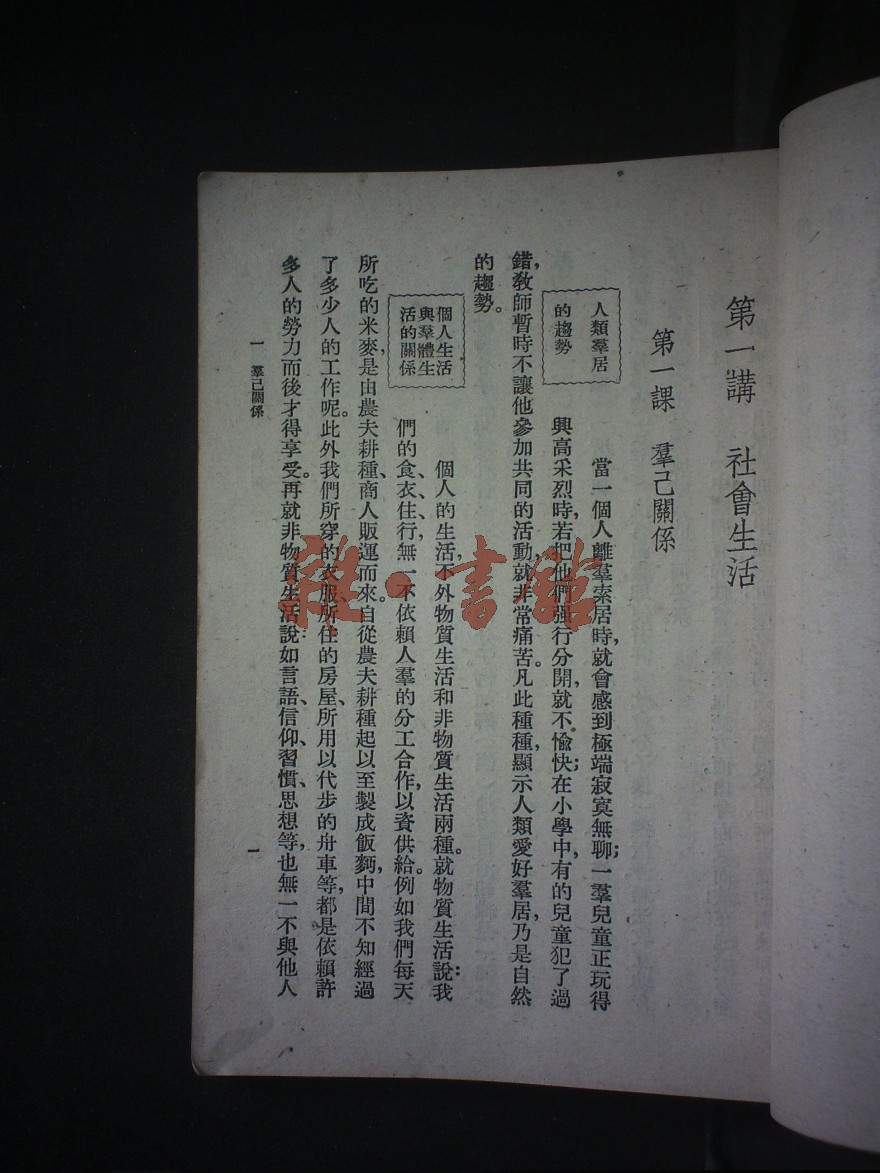 第一講　社會生活
第一課　羣己關係
人類羣居
的趨勢
當一個人離羣索居時，就會感到極端寂寞無聊；一羣兒童正玩得
興高采烈時，若把他們强行分開，就不愉快；在小學中，有的兒童犯了過
錯，教師暫時不讓他參加共同的活動，就非常痛苦。凡此種種，顯示人類愛好羣居，乃是自然
的趨勢。
個人生活
與羣體生
活的關係
個人的生活，不外物質生活和非物質生活兩種。就物質生活說：我
們的食、衣、住、行，無一不依賴人羣的分工合作，以資供給。例如我們每天
所吃的米麥，是由農夫耕種、商人販運而來。自從農夫耕種起以至製成飯麪，中間不知經過
了多少人的工作呢。此外我們所穿的衣服、所住的房屋、所用以代步的舟車等，都是依賴許
多人的勞力而後才得享受。再就非物質生活說：如言語、信仰、習慣、思想等，也無一不與他人
一　羣己關係
一
雜·書館